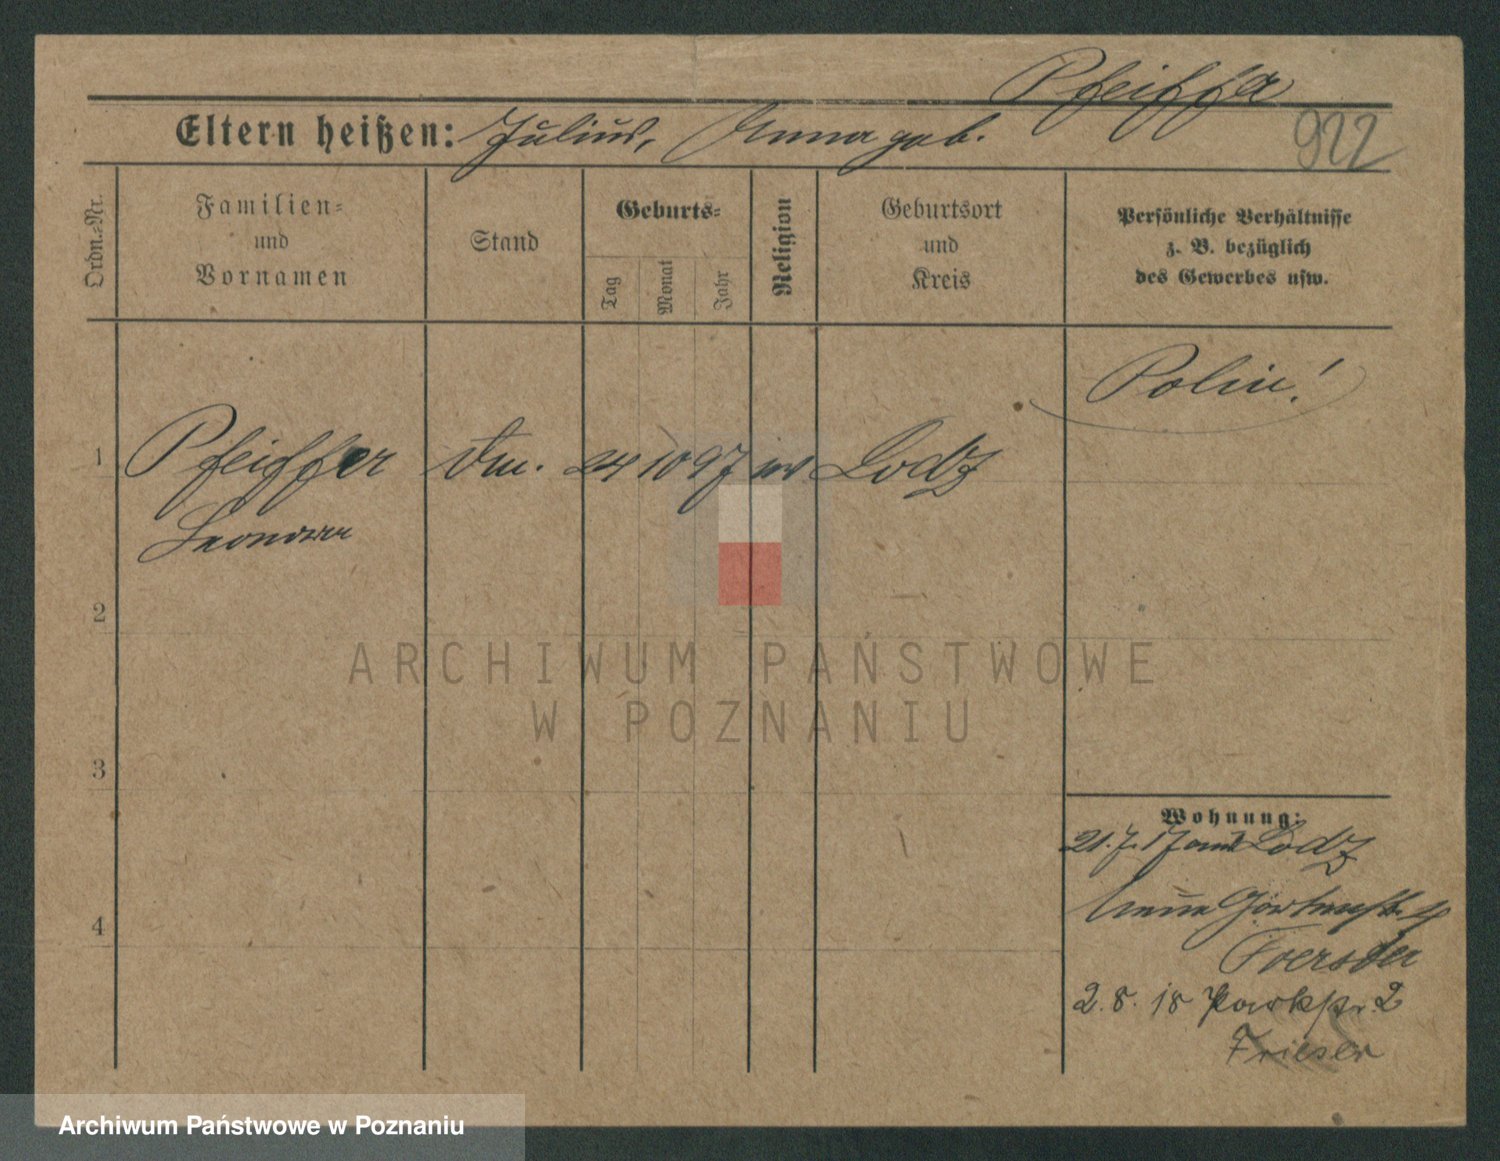 Pfeiffer
Eltern heißen: Julius, Anna geb.
922
Ordn.-Nr.
Familien-
und
Vornamen
Stand
Geburts-
Tag
Monat
Jahr
Religion
Geburtsort
und
Kreis
Persönliche Verhältnisse
z. B. bezüglich
des Gewerbes usw.
Polin!
1 Pfeiffer 24 10 97 Lodz
2
ARCHIWUM PAŃSTWOWE
W POZNANIU
3
Wohnung:
21.7.17 aus Lodz
4 Neue Gartenstr.
Foerster
2.8.18 Parkstr. 2
Frieser
Archiwum Państwowe w Poznaniu